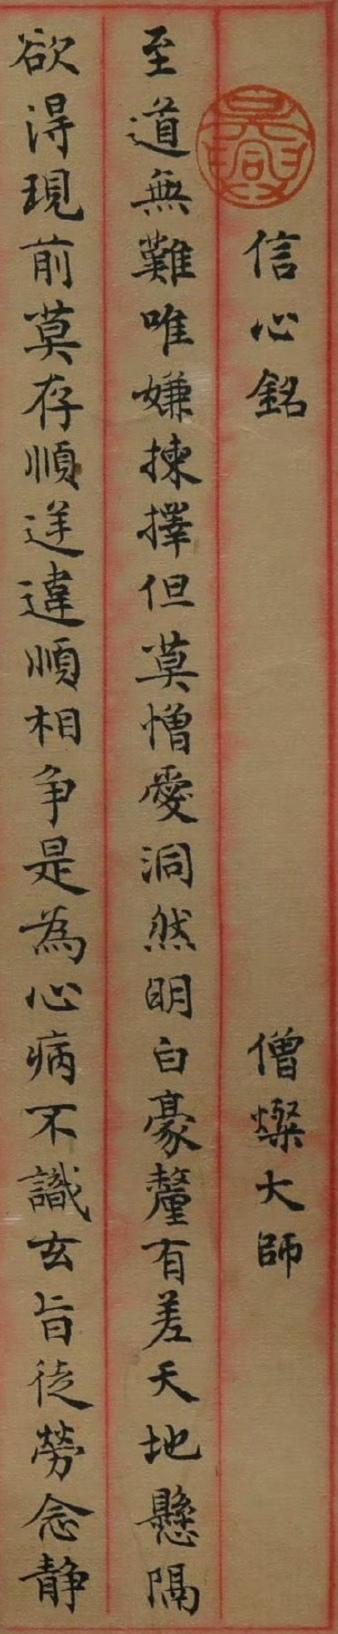 信心銘 僧燦大師
至道無難唯嫌揀擇但莫憎愛洞然明白豪釐有差天地懸隔
欲得現前莫存順逆違順相爭是為心病不識玄旨徒勞念静